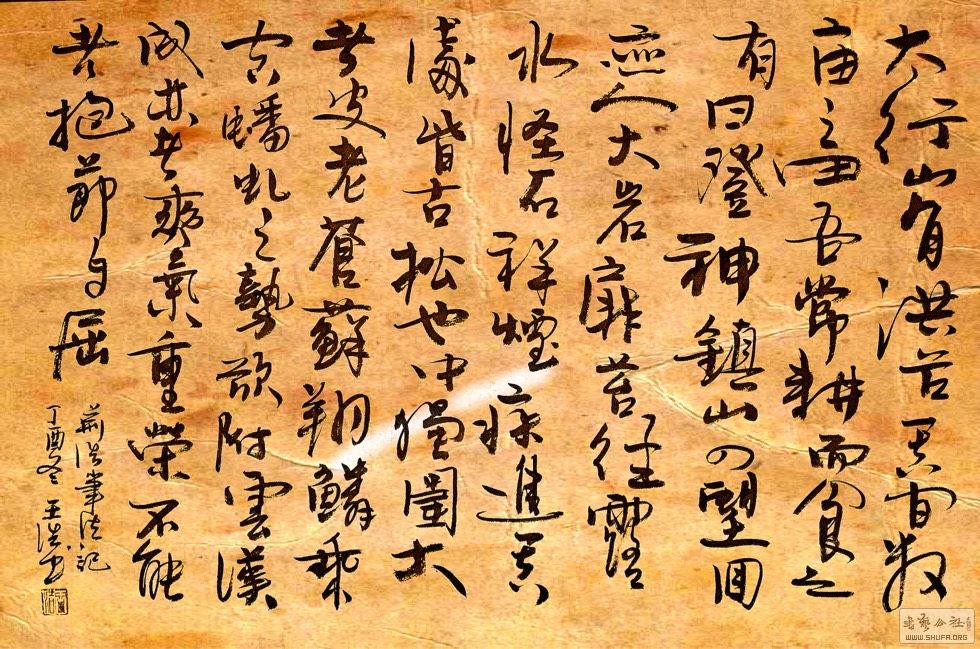 大行山有洪谷其间数
亩之田吾常耕而食之
有曰登神鎮山四望回
迹入大岩扉苔径露
水怪石祥煙疾進其
處皆古松也中獨圍大
者皮老蒼蘚翔鱗乘
空蟠虬之勢欲附雲漢
成林者爽氣重榮不能
者抱節自屈
荊浩筆法記
丁酉冬王浩书
书艺公社
WWW.SHUFA.ORG